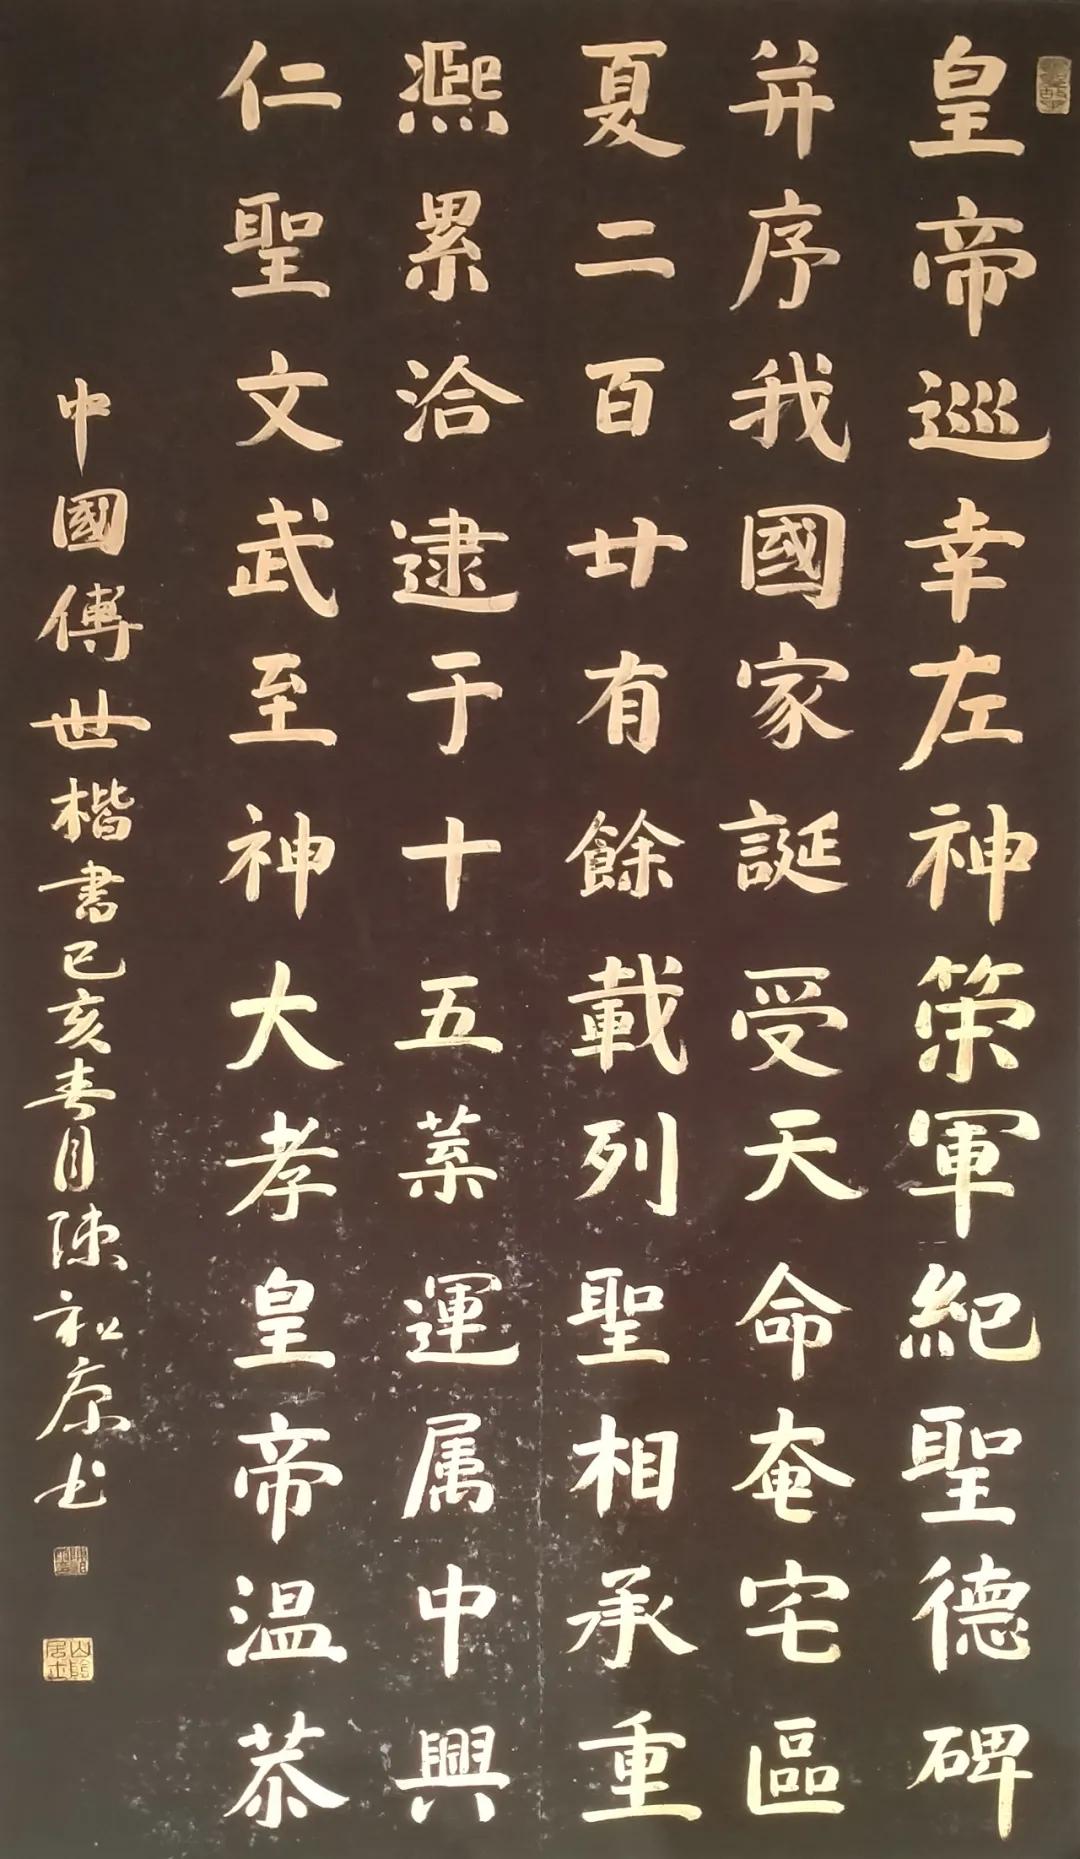 皇帝巡幸左神策軍紀聖德碑
并序我國家誕受天命奄宅區
夏二百廿有餘載列聖相承重
熈累洽逮于十五葉運属中興
仁聖文武至神大孝皇帝温恭
中國傳世楷書己亥春月陳和原书